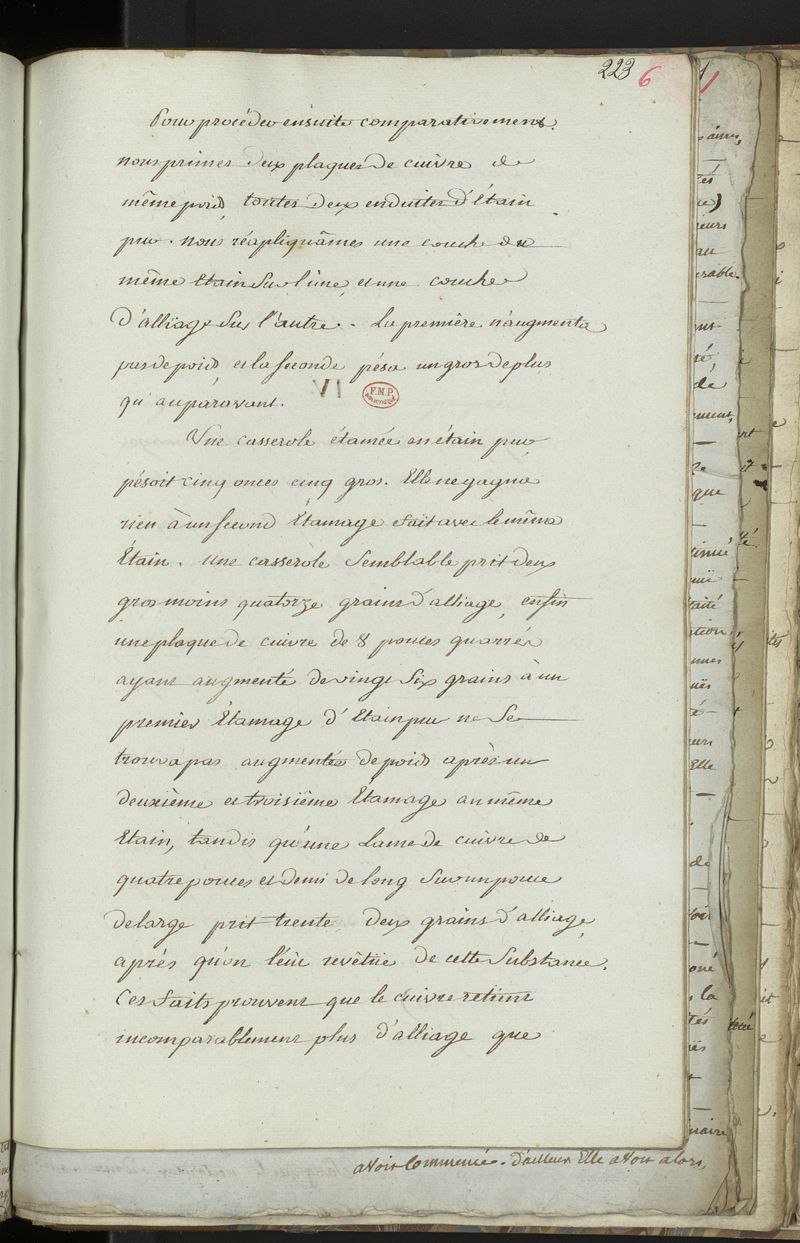 223 6
Pour procéder ensuite comparativement.
nous primes deux plaques de cuivre de
même poid toutes deux enduites d'étain
pur. nous réapliquâmes une couche du
même Etain sur l'une, et une couche
D'alliage sur l'autre. La première n'augmenta
pas de poid et la seconde pésa un gros de plus
qu'auparavant.
VI
F.M.P.
BIBLIOTHEQUE
Une casserole étamée en étain pur
pésoit cinq onces cinq gros. Elle ne gagna
rien à un second Etamage fait avec le même
Etain. une casserole semblable prit deux
gros moins quatorze grains d'alliage, enfin
une plaque de cuivre de 8 pouces quarrés
ayant augmenté de vingt six grains à un
premier Etamage d'Etain pur ne se
trouva pas augmentée de poid après un
deuxième et troisième Etamage au même
Etain, tandis qu'une Lame de cuivre de
quatre pouces et demi de long sur un pouce
de large prit trente deux grains d'alliage
après qu'on l'eût revêtue de cette substance.
Ces faits prouvent que le cuivre retient
incomparablement plus d'alliage que
avoir commencé. d'ailleurs Elle avoit alors,